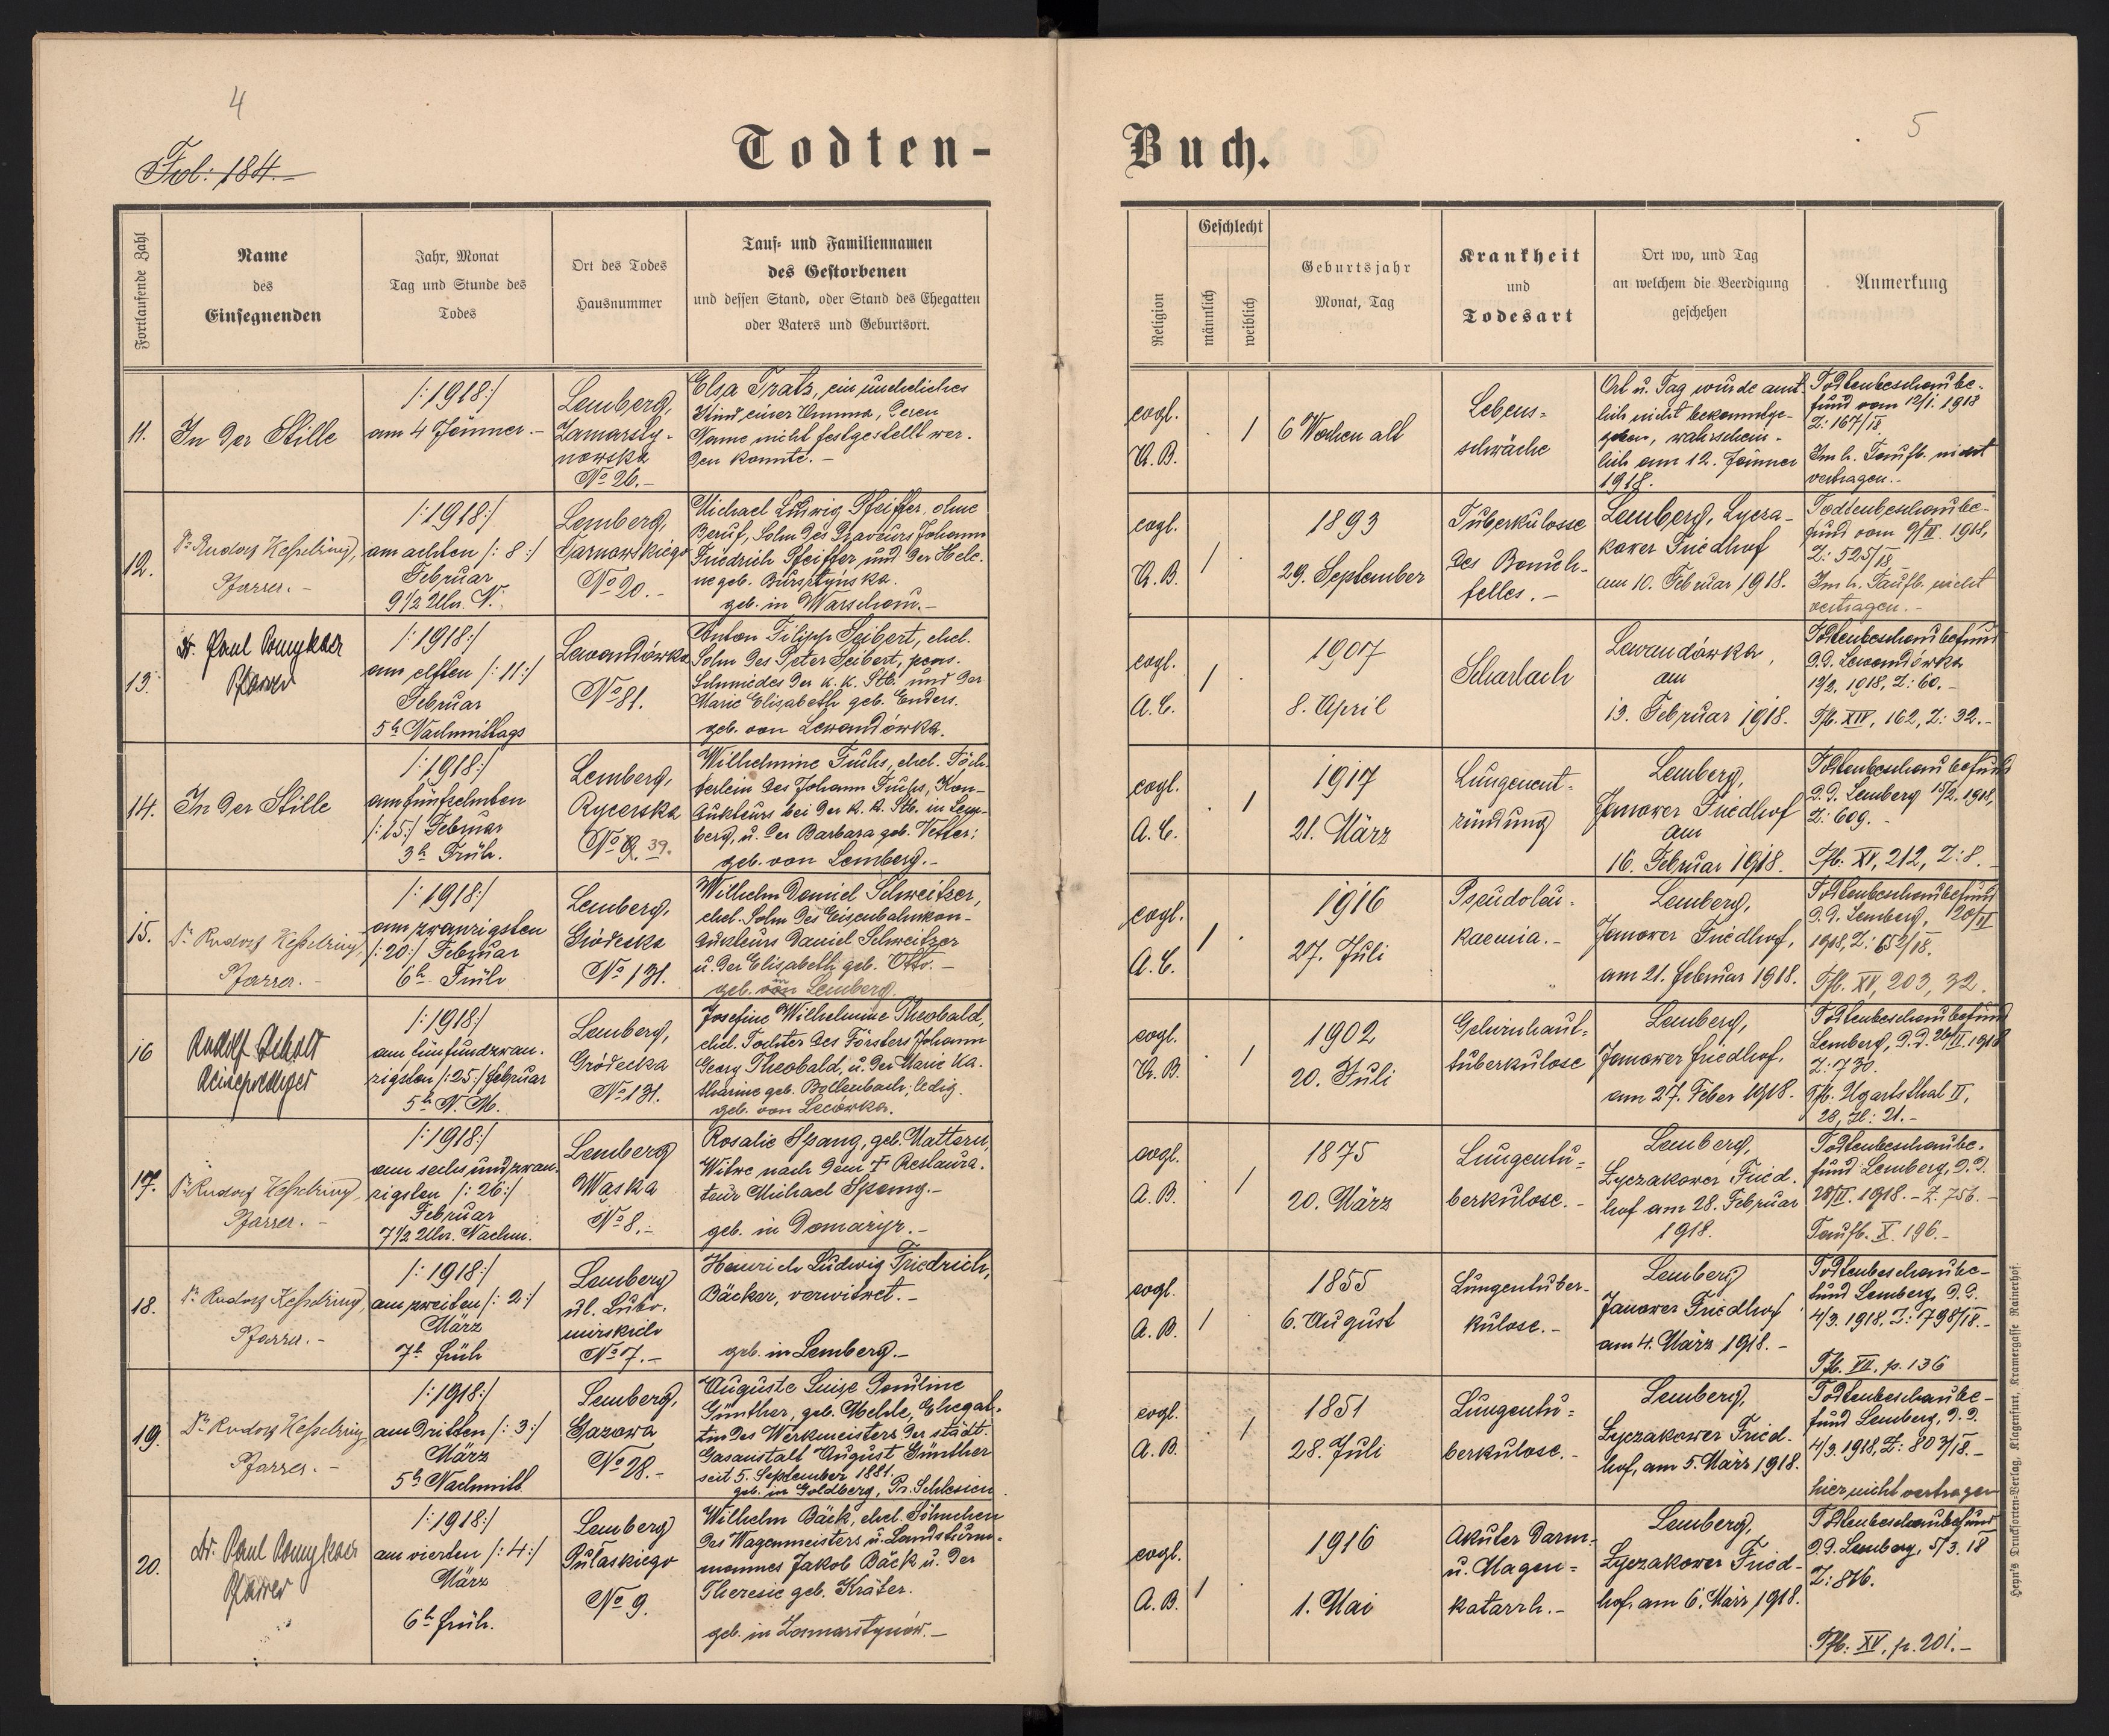 4
Fol: 184.-
Todten-
Fortlaufende Zahl
Name
des
Einsegnenden
Jahr, Monat
Tag und Stunde des
Todes
Ort des Todes
Hausnummer
Tauf- und Familiennamen
des Gestorbenen
und dessen Stand, oder Stand des Ehegatten
oder Vaters und Geburtsort.
11.
In der Stille
/:1918:/
am 4 Jänner.-
Lemberg,
Zamarsty-
nowska
No 26.-
Elsa Tratz, ein uneheliches
Kind einer Amma, deren
Name nicht festgestellt wer-
den konnte.-
12.
Dr Rudolf Kesselring,
Pfarrer.-
/:1918:/
am achten /:8:/
Februar
9 1/2 Uhr. N.
Lemberg,
Tarnowskiego
No 20.-
Michael Ludwig Pfeiffer, ohne
Beruf, Sohn des Graveurs Johann
Friedrich Pfeiffer, und der Hele-
ne geb. Bursztynska.
geb. in Warschau.-
13.
Dr. Paul Pomykacz
Pfarrer
/:1918:/
am elften /:11:/
Februar
5h Nachmittags
Lewandówka
No 81.
Anton Filipp Seibert, ehel.
Sohn des Peter Seibert, pens.
Schmiedes der k. k. Stb. und der
Marie Elisabeth geb. Enders.
geb. von Lewandówka.
14.
In der Stille
/:1918:/
am fünfzehnten
/:15:/ Februar
3h Früh.
Lemberg,
Rycerska
No 39.
Wilhelmine Fuchs, ehel. Töch-
terlein des Johann Fuchs, Kon-
dukteurs bei der k. k. Stb. in Lem-
berg, u. der Barbara geb. Vetter:
geb. von Lemberg.-
15.
Dr Rudolf Kesselring,
Pfarrer.-
/:1918:/
am zwanzigsten
/:20:/ Februar
6h Früh
Lemberg,
Gródecka
No 131.
Wilhelm Daniel Schweitzer,
ehel. Sohn des Eisenbahnkon-
dukteurs Daniel Schweitzer
u. der Elisabeth geb. Otto.-
geb. in Lemberg.
16
Rudolf Scholt
Reiseprediger
/:1918:/
am fünfundzwan-
zigsten /:25:/ Februar
5h N. M.
Lemberg,
Gródecka
No 131.
Josefine Wilhelmine Theobald,
ehel. Tochter des Försters Johann
Georg Theobald, u. der Marie Ka-
tharine geb. Bollenbach, ledig.
geb. von Lecówka.
17.
Dr Rudolf Kesselring,
Pfarrer.-
/:1918:/
am sechs und zwan-
zigsten /:26:/
Februar
7 1/2 Uhr. Nachm.
Lemberg
Waska
No 8.-
Rosalie Spang, geb. Mattern,
Witwe nach dem † Restaura-
teur Michael Spang.-
geb. in Domazyr.-
18.
Dr Rudolf Kesselring,
Pfarrer.-
/:1918:/
am zweiten /:2:/
März
7h früh
Lemberg
ul. Lubo-
mirskich
No 7.-
Heinrich Ludwig Friedrich,
Bäcker, verwitwet.-
geb. in Lemberg.-
19.
Dr Rudolf Kesselring,
Pfarrer.-
/:1918:/
am dritten /:3:/
März
5h Nachmitt.
Lemberg,
Gazowa
No 28.-
Auguste Luise Pauline
Günther, geb. Mehle, Ehegat-
tin des Werkmeisters der städt.
Gasanstalt August Günther
seit 5. September 1881.
geb. in Goldberg, Pr. Schlesien.
20.
Dr. Paul Pomykacz
Pfarrer
/:1918:/
am vierten /:4:/
März
6h früh.
Lemberg
Pułaskiego
No 9.
Wilhelm Bäck, ehel. Söhnchen
des Wagenmeisters u. Landsturm-
mannes Jakob Bäck u. der
Theresie geb. Kräter.
geb. in Zamarstynów.-
5
Buch.
Religion
Geschlecht
männlich
weiblich
Geburtsjahr
Monat, Tag
Krankheit
und
Todesart
Ort wo, und Tag
an welchem die Beerdigung
geschehen
Anmerkung
evgl.
A. B.
1
6 Wochen alt
Lebens-
schwäche
Ort u. Tag wurde amt-
lich nicht bekanntge-
geben, wahrschein-
lich am 12. Jänner
1918.
Todtenbeschaube-
fund vom 12/I. 1918
Z: 167/18
Im h. Taufb. nicht
vertragen.-
evgl.
A. B.
1
1893
29. September
Tuberkulosse
des Bauch-
felles.-
Lemberg, Lycza-
kower Friedhof
am 10. Februar 1918.
Todtenbeschaube-
fund vom 9/II. 1918,
Z: 525/18
Im h. Taufb. nicht
vertragen.-
evgl.
A. C.
1
1907
8. April
Scharlach
Lewandówka,
am
13. Februar 1918.
Todtenbeschaubefund
d.d. Lewandówka
12/2. 1918, Z: 60.-
Tfb. XIV, 162, Z: 32.-
evgl.
A. C.
1
1917
21. März
Lungenent-
zündung
Lemberg,
Janower Friedhof
am
16. Februar 1918.
Todtenbeschaubefund
d.d. Lemberg 15/2. 1918,
Z: 609.-
Tfb. XV, 212, Z: 8.-
evgl.
A. C.
1
1916
27. Juli
Pseudoleu-
kaemia.-
Lemberg,
Janower Friedhof,
am 21. Februar 1918.
Todtenbeschaubefund
d.d. Lemberg, 20/II
1918, Z: 652/18.
Tfb. XV, 203, 32.
evgl.
A. B.
1
1902
20. Juli
Gehirnhaut-
tuberkulose
Lemberg,
Janower Friedhof,
am 27. Feber 1918.
Todtenbeschaubefund
Lemberg, d.d. 26/II. 1918
Z: 730.
Tfb. Ugartsthal II,
28, Zl: 21.-
evgl.
A. B.
1
1875
20. März
Lungentu-
berkulose.-
Lemberg,
Lyczakower Fried-
hof am 28. Februar
1918.
Todtenbeschaube-
fund Lemberg, d.d.
28/II. 1918.- Z. 756.-
Taufb. X. 196.-
evgl.
A. B.
1
1855
6. August
Lungentuber-
kulose.-
Lemberg
Janower Friedhof
am 4. März 1918.-
Todtenbeschaube-
fund Lemberg, d.d.
4/3. 1918. Z: 798/18.-
Tfb. VII, p. 136
evgl.
A. B.
1
1851
28. Juli
Lungentu-
berkulose.-
Lemberg,
Lyczakower Fried-
hof, am 5. März 1918.
Todtenbeschaube-
fund Lemberg, d.d.
4/3. 1918, Z: 803/18.-
hier nicht vertragen
evgl.
A. B.
1
1916
1. Mai
Akuter Darm-
u. Magen-
katarrh.-
Lemberg,
Lyczakower Fried-
hof, am 6. März 1918.
Todtenbeschaubefund
d.d. Lemberg, 5/3. 18
Z: 816.
Tfb: XV, p. 201.-
Heyn's Drucksorten-Verlag, Klagenfurt, Kramergasse Rainerhof.